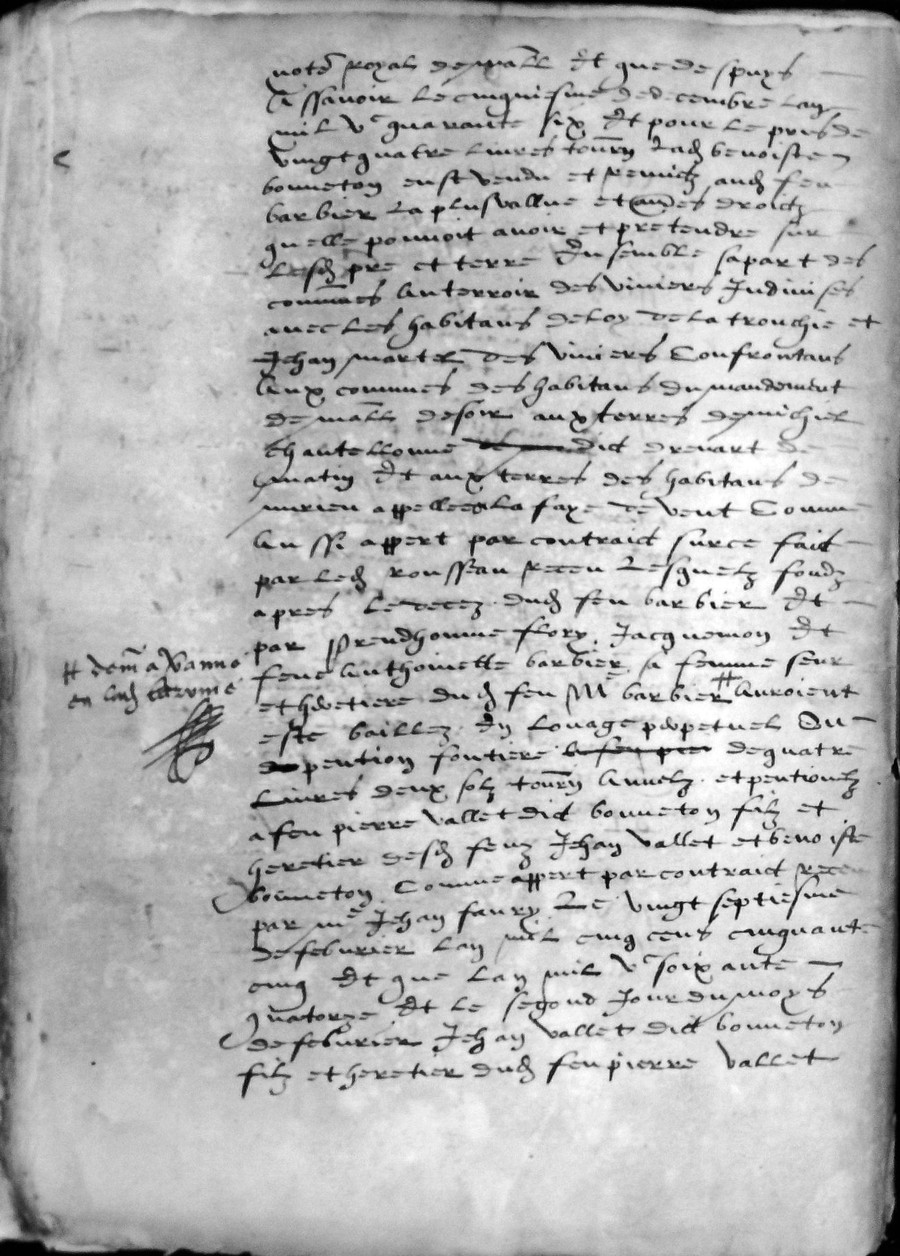 notē royal de mall et que despuys
A ssavoir le cinquiesme de decembre lan
mil vc quarante six et pour le pris de
vingt quatre livres tourn lad benoiste
bonneton eust vendu et remis aud feu
barbier la plus vallue et autres droictz
quelle pouvoit avoir et pretendre sur
lesd pre et terre ensemble sa part des
commes au terroir des viviers Indivises
avec les habitans de loy de la tronchie et
Jehan martel des viviers Confrontans
aux communes des habitans du mandement
de mall de soir aux terres de michel
chantellouve dict drevart de
matin et aux terres des habitans de
murien appellees la faye de vent Comme
aussi appert par contraict sur ce faict
par led rousseau receu Lesquelz fondz
apres le decez dud feu barbier et
par prendhomme flory Jacquemon et
feue Anthoinette barbier sa femme seur
et heretiere dud feu Me barbier # auroient
este baillez en louage perpetuel Ou
pention fontiere de quatre
Livres deux solz tourn annuelz et pentionelz
a feu pierre vallet dict bonneton filz et
heretier desd feuz Jehan vallet et benoiste
bonneton Comme appert par contraict receu
par me Jehan faury le vingt septiesme
de feburier lan mil cinq cens cinquante
cinq et que lan mil vc soixante
quatorze et le segond Jour du moys
de feburier Jehan vallet dict bonneton
filz et heretier dud feu pierre vallet